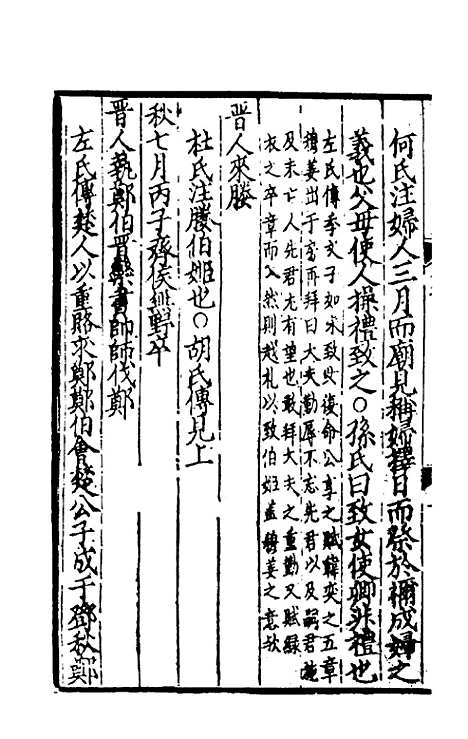 何氏注婦人三月而廟見稱婦擇日而祭於禰成婦之
義也父母使人操禮致之○孫氏曰致女使卿非禮也
左氏傳季文子如宋致女復命公享之賦韓奕之五章
穆姜出于房再拜曰大夫勤辱不忘先君以及嗣君施
及未亡人先君尤有望也敢拜大夫之重勤又賦綠
衣之卒章而入然則越礼以致伯姬盖穆姜之意欤
晋人來媵
杜氏注媵伯姬也○胡氏傳見上
秋七月丙子齊侯無野卒
晋人執鄭伯晋欒書帥師伐鄭
左氏傳楚人以重賂求鄭鄭伯會楚公子成于鄧秋鄭